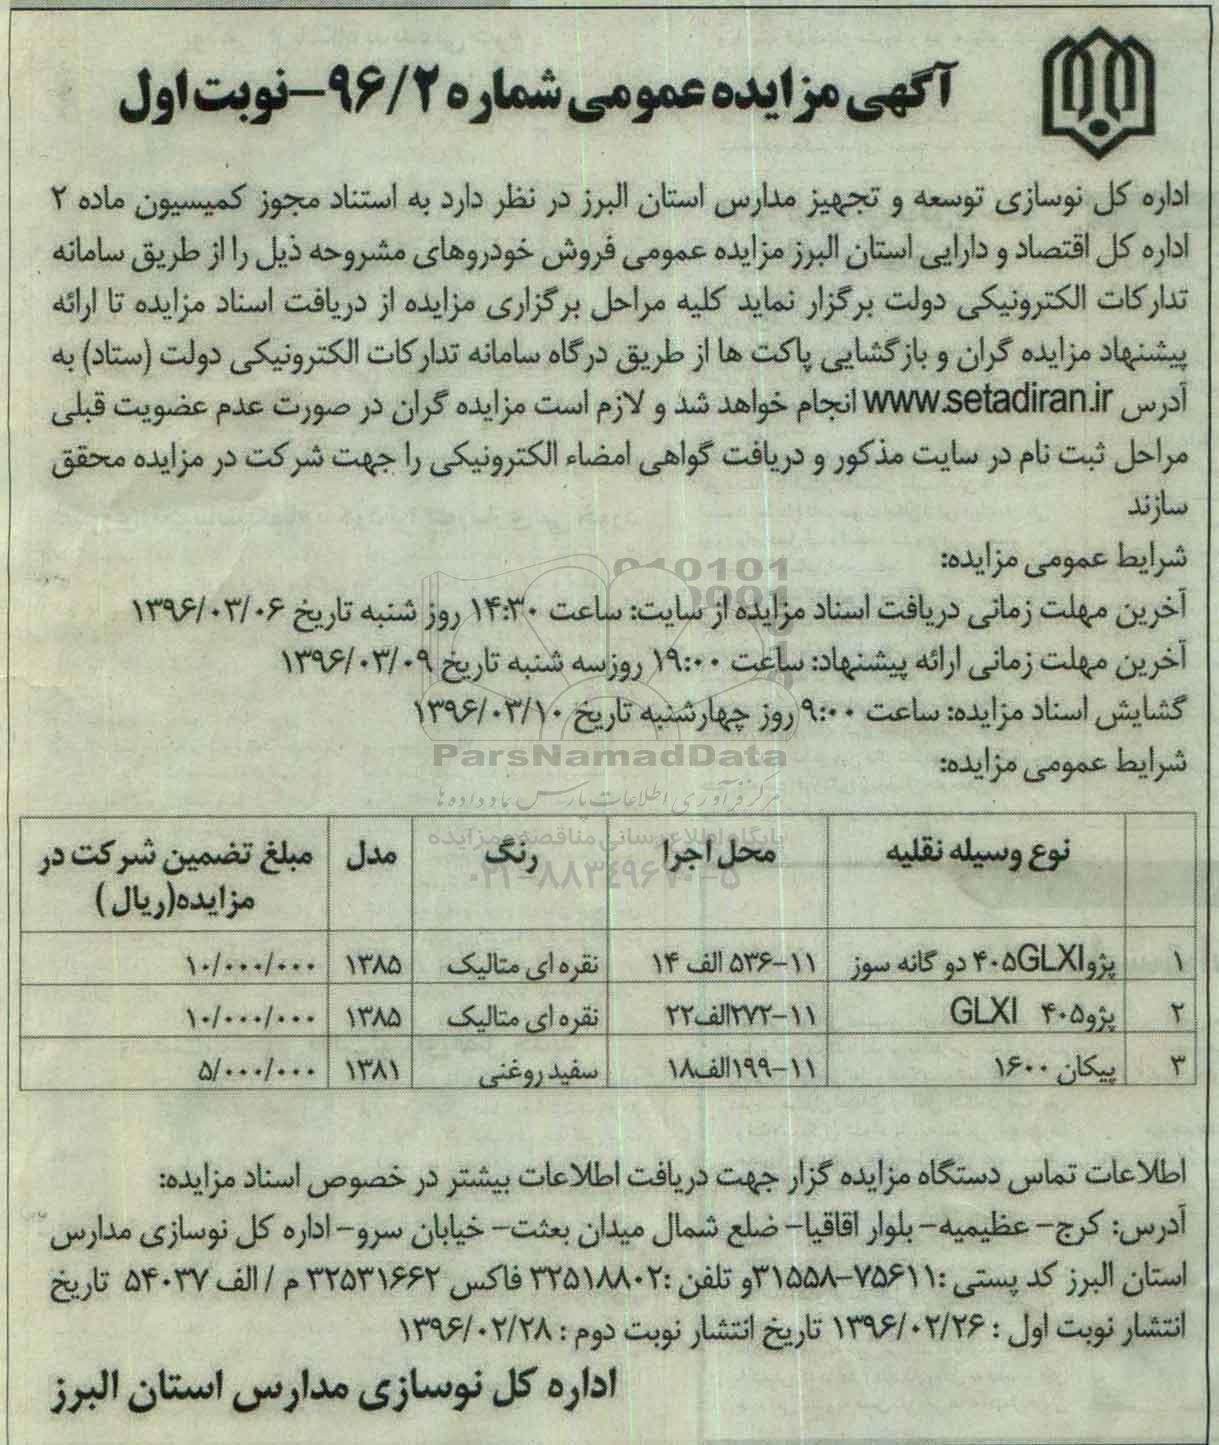 آگهی مزایده عمومی شماره ۹۶/۲-نوبت اول
اداره کل نوسازی توسعه و تجهیز مدارس استان البرز در نظر دارد به استناد مجوز کمیسیون ماده ۲
اداره کل اقتصاد و دارایی استان البرز مزایده عمومی فروش خودروهای مشروحه ذیل را از طریق سامانه
تدارکات الکترونیکی دولت برگزار نماید کلیه مراحل برگزاری مزایده از دریافت اسناد مزایده تا ارائه
پیشنهاد مزایده گران و بازگشایی پاکت ها از طریق درگاه سامانه تدارکات الکترونیکی دولت (ستاد) به
آدرس www.setadiran.ir انجام خواهد شد و لازم است مزایده گران در صورت عدم عضویت قبلی
مراحل ثبت نام در سایت مذکور و دریافت گواهی امضاء الکترونیکی را جهت شرکت در مزایده محقق
سازند
شرایط عمومی مزایده:
آخرین مهلت زمانی دریافت اسناد مزایده از سایت: ساعت ۱۴:۳۰ روز شنبه تاریخ ۱۳۹۶/۰۳/۰۶
آخرین مهلت زمانی ارائه پیشنهاد: ساعت ۱۹:۰۰ روزسه شنبه تاریخ ۱۳۹۶/۰۳/۰۹
گشایش اسناد مزایده: ساعت ۹:۰۰ روز چهارشنبه تاریخ ۱۳۹۶/۰۳/۱۰
ParsNamadData
شرایط عمومی مزایده:
مرکز فرآوری اطلاعات پارس نماد داده ها
پایگاه اطلاع رسانی مناقصه و مزایده
۰۲۱-۸۸۳۴۹۶۷۰-۵
نوع وسیله نقلیه محل اجرا رنگ مدل مبلغ تضمین شرکت در
مزایده(ریال)
۱ پژو۴۰۵GLXI دو گانه سوز ۱۱-۵۳۶ الف ۱۴ نقره ای متالیک ۱۳۸۵ ۱۰/۰۰۰/۰۰۰
۲ پژو۴۰۵ GLXI ۱۱-۲۷۲الف۲۲ نقره ای متالیک ۱۳۸۵ ۱۰/۰۰۰/۰۰۰
۳ پیکان ۱۶۰۰ ۱۱-۱۹۹الف۱۸ سفید روغنی ۱۳۸۱ ۵/۰۰۰/۰۰۰
اطلاعات تماس دستگاه مزایده گزار جهت دریافت اطلاعات بیشتر در خصوص اسناد مزایده:
آدرس: کرج- عظیمیه- بلوار اقاقیا- ضلع شمال میدان بعثت- خیابان سرو- اداره کل نوسازی مدارس
استان البرز کد پستی :۷۵۶۱۱-۳۱۵۵۸و تلفن :۳۲۵۱۸۸۰۲ فاکس ۳۲۵۳۱۶۶۲ م / الف ۵۴۰۳۷ تاریخ
انتشار نوبت اول : ۱۳۹۶/۰۲/۲۶ تاریخ انتشار نوبت دوم : ۱۳۹۶/۰۲/۲۸
اداره کل نوسازی مدارس استان البرز